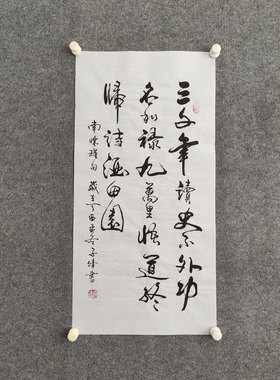 三千年讀史不外功
名利祿九萬里悟道終
歸詩酒田園
南懷瑾句 歲在丁酉 書